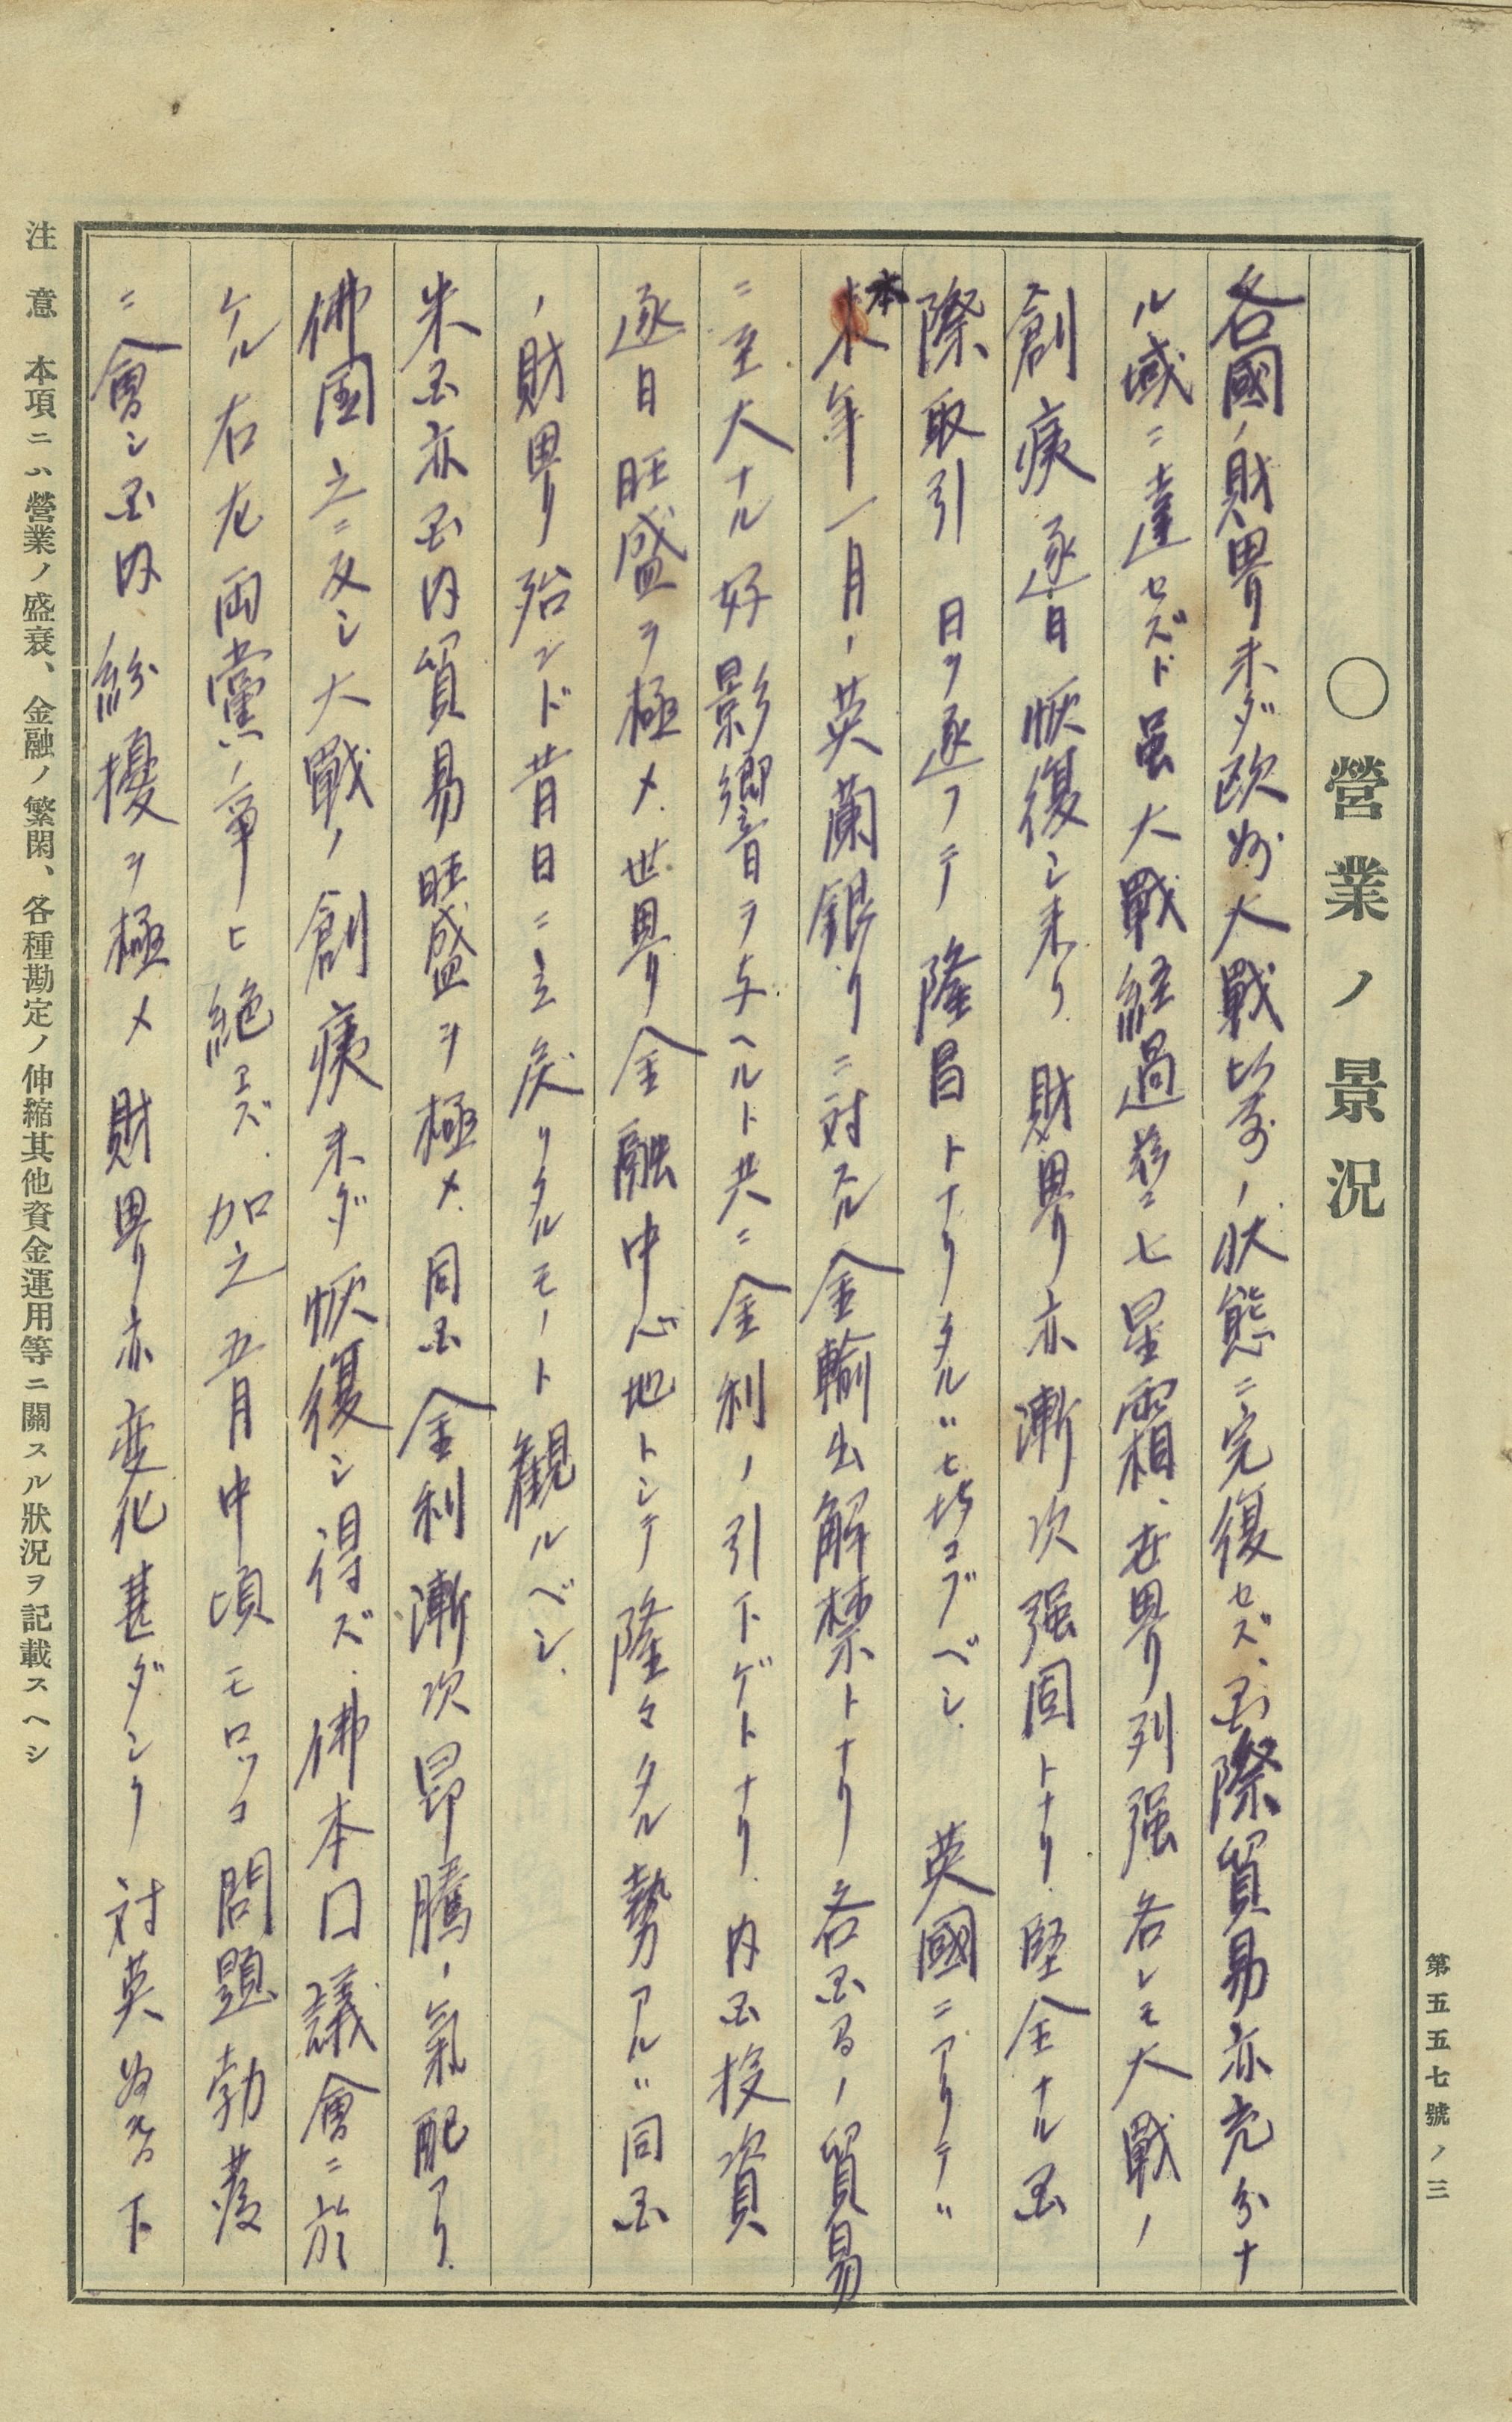 第五五七號ノ三
○營業ノ景況
各國ノ財界未ダ欧州大戰以前ノ状態ニ完復セズ、国際貿易亦充分ナ
ル域ニ達セズト虽大戰経過茲ニ七星霜、世界列强各レモ大戰ノ
創痍逐日恢復シ来リ財界亦漸次强固トナリ堅全ナル国
際取引日ヲ逐フテ隆昌トナリタルハ七拾コブベシ 英國ニアリテハ
本年一月ノ英蘭銀行ニ対スル金輸出解禁トナリ各国間ノ貿易
ニ至大ナル好影響ヲ与ヘルト共ニ金利ノ引下ゲトナリ内国投資
逐日旺盛ヲ極メ世界金融中心地トシテ隆々タル勢アルハ同国
ノ財界殆ンド昔日ニ立戻リタルモノト観ルベシ
米国亦国内貿易旺盛ヲ極メ同国金利漸次昂騰ノ氣配アリ
佛国之ニ反シ大戰ノ創痍未ダ恢復シ得ズ佛本国議會ニ於
ケル右左両黨ノ争ヒ絶エズ加之五月中頃モロッコ問題勃發
ニ會シ国内紛擾ヲ極メ財界亦変化甚ダシク対英為替下
注意 本項ニハ營業ノ盛衰、金融ノ繁閑、各種勘定ノ伸縮其他資金運用等ニ關スル狀況ヲ記載スヘシ